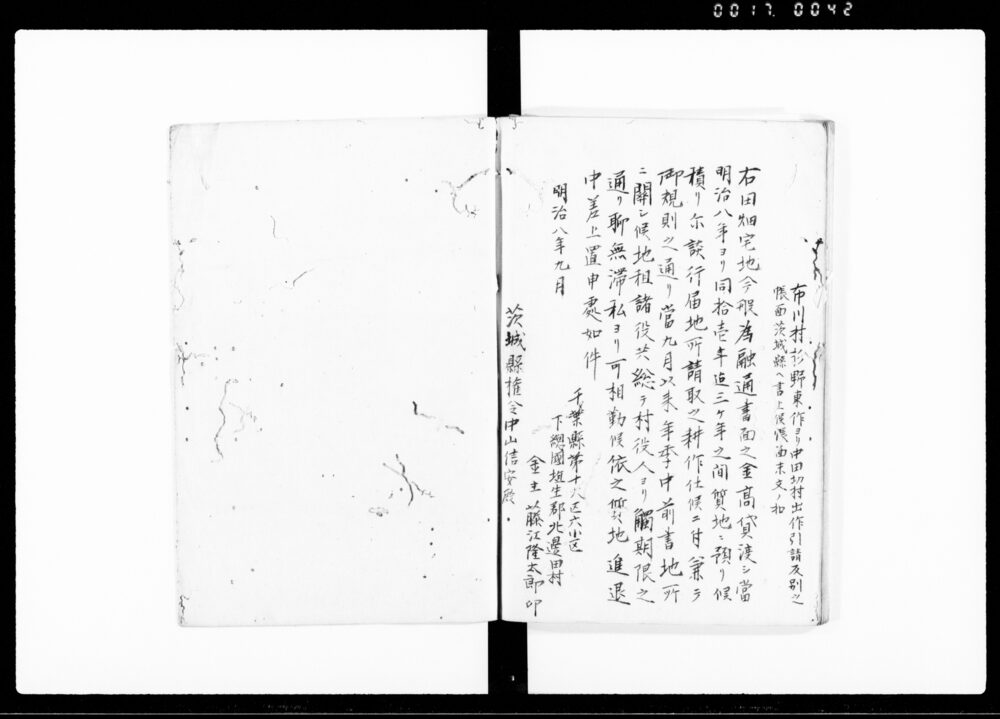 0017. 0042
布川村杉野東作ヨリ中田切村出作引請反別之
帳面茨城縣ヘ書上候帳面末文ノ扣
右田畑宅地今般為融通書面之金高貸渡シ當
明治八年ヨリ同拾壱年迠三ケ年之间質地ニ預リ候
積リ尓談行届地所請取之耕作仕候ニ付兼テ
御規則之通リ當九月以来年季中前書地所
ニ関シ候地租諸役共総テ村役人ヨリ觸期限之
通リ聊無滞私ヨリ可相勤候依之質地進退
中差上置申處如件
明治八年九月
千葉縣第十八区六小区
下總國埴生郡北邊田村
金主 藤江隆太郎 印
茨城縣権令中山信安殿